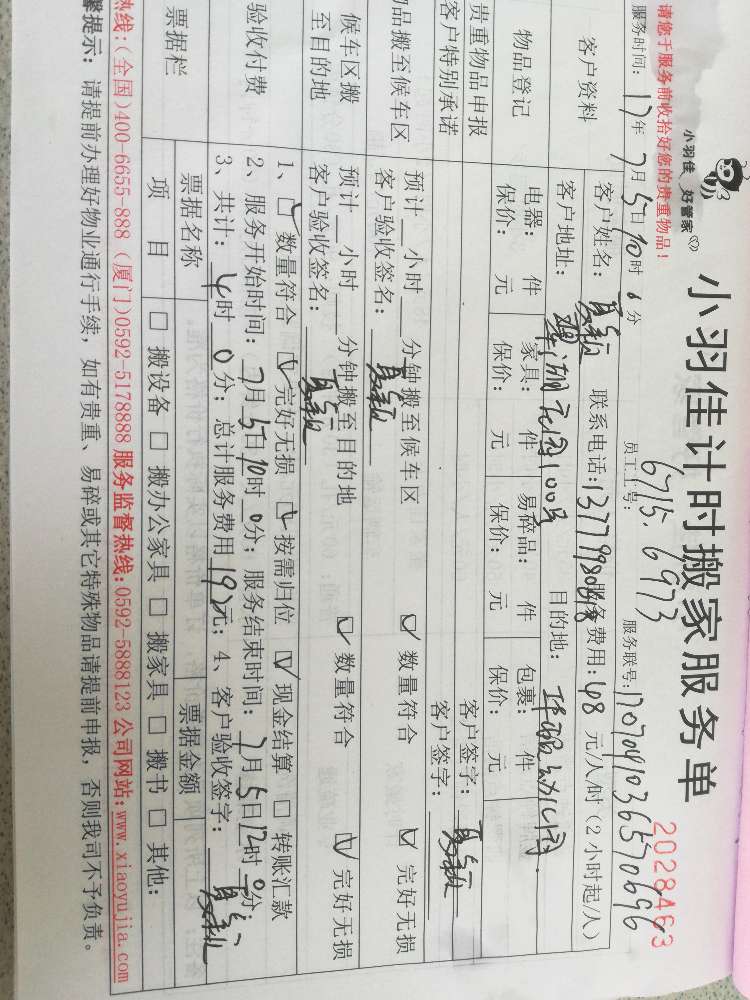 小羽佳 好管家
小羽佳计时搬家服务单
2028463
请您于服务前收拾好您的贵重物品!
员工工号: 6715. 6973
服务时间: 17年 7月 5日 10时 0分
服务联号:
客户资料
客户姓名: 联系电话: 服务费用: 48 元/人/时 (2小时起/人)
客户地址: 目的地:
物品登记
电器: 件 家具: 件 易碎品: 件 包裹: 件
保价: 元 保价: 元 保价: 元 保价: 元
贵重物品申报 客户签字:
客户特别承诺 客户签字:
物品搬至候车区
预计 小时 分钟搬至候车区 ☑ 数量符合 ☑ 完好无损
客户验收签名:
候车区搬至目的地
预计 小时 分钟搬至目的地 ☑ 数量符合 ☑ 完好无损
客户验收签名:
验收付费
1、☑ 数量符合 ☑ 完好无损 ☑ 按需归位 ☑ 现金结算 ☐ 转账汇款
2、服务开始时间: 7月 5日 10时 0分; 服务结束时间: 7月 5日 12时 0分;
3、共计: 4时 0分; 总计服务费用 192元; 4、客户验收签字:
票据栏
票据名称 票据金额
项 目 ☐ 搬设备 ☐ 搬办公家具 ☐ 搬家具 ☐ 搬书 ☐ 其他:
热线:(全国)400-6655-888 (厦门)0592-5178888 服务监督热线:0592-5888123 公司网站:www.xiaoyujia.com
馨提示: 请提前办理好物业通行手续, 如有贵重、易碎或其它特殊物品请提前申报, 否则我司不予负责。